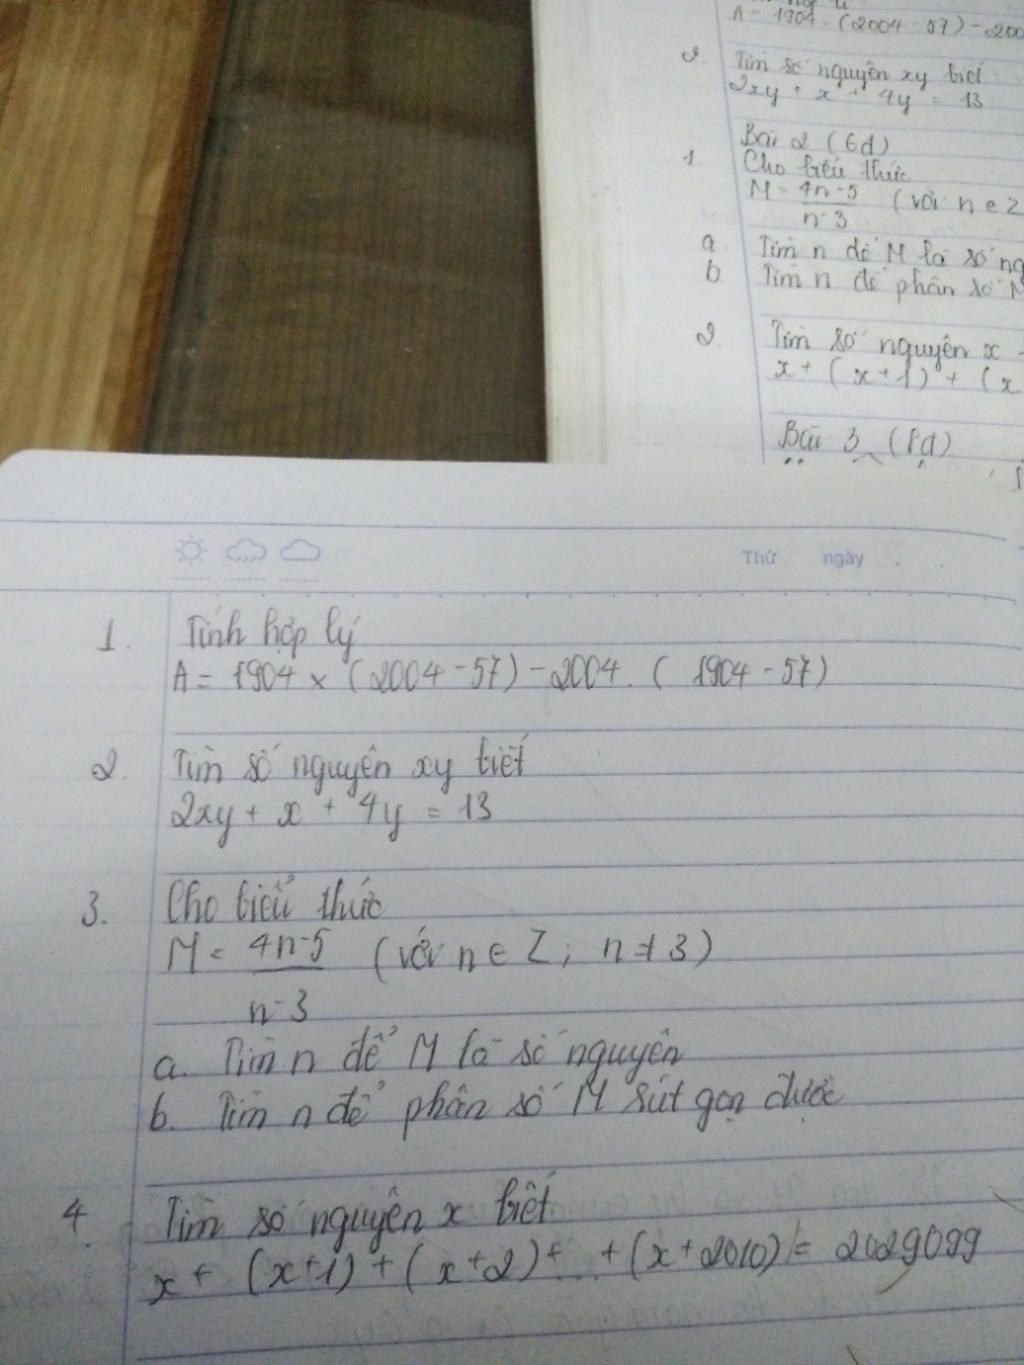 A = 1904 . (2004 - 57) - 200
2. Tìm số nguyên xy biết
2xy + x + 4y = 13
Bài 2 (6đ)
1 Cho biểu thức
M = 4n-5 (với n ∈ Z
n-3
a. Tìm n để M là số ng
b. Tìm n để phân số M
2. Tìm số nguyên x
x + (x+1) + (x
Bài 3 (8đ)
Thứ ngày
1. Tính hợp lý
A = 1904 x (2004 - 57) - 2004. ( 1904 - 57)
2. Tìm số nguyên xy biết
2xy + x + 4y = 13
3. Cho biểu thức
M = 4n-5 (với n ∈ Z; n ≠ 3)
n-3
a. Tìm n để M là số nguyên
b. Tìm n để phân số M rút gọn được
4. Tìm số nguyên x biết
x + (x+1) + (x+2) + ... + (x+2010) = 2029099